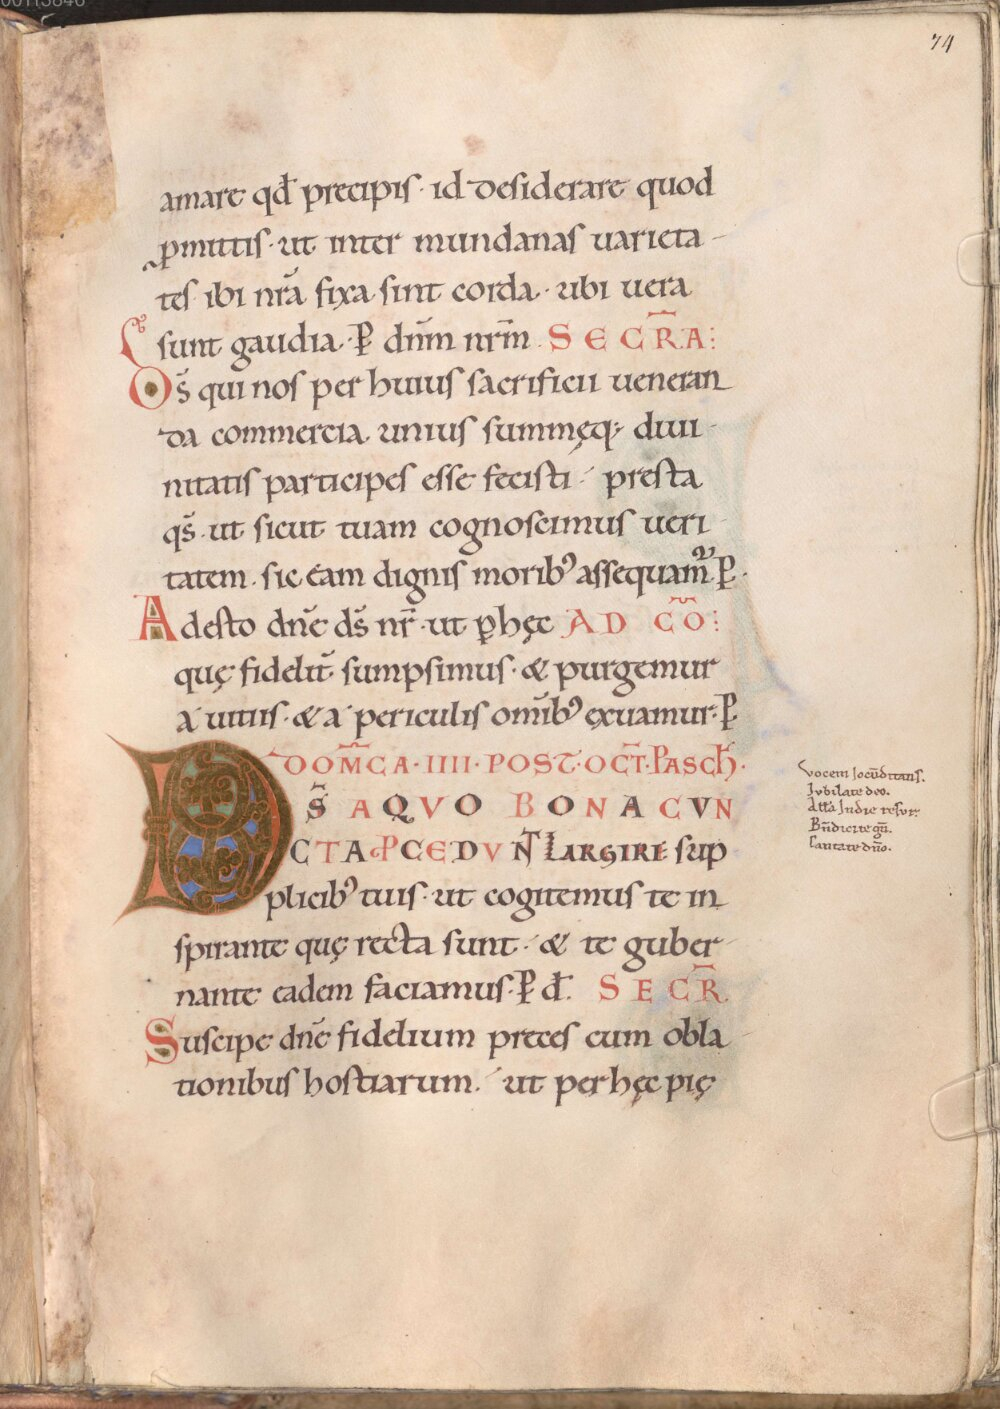 74
amare qđ precipis · id desiderare quod
ꝑmittis · ut inter mundanas uarieta-
tes ibi nr̄a fixa sint corda · ubi uera
sunt gaudia · P̱ dn̄m nr̄m SECR̄A:
Ds̄ qui nos per huius sacrificii ueneran
da commercia · unius summęq; diui-
nitatis participes esse fecisti · presta
qs̄ · ut sicut tuam cognoscimus ueri-
tatem · sic eam dignis moribꝰ assequam̄ · P̱ ·
Adesto dn̄e ds̄ nr̄ · ut ꝑ hęc AD CŌ:
quę fidelit̄ sumpsimus · & purgemur
a uitiis · & a periculis om̄ibꝰ exuamur · P̱
DOM̄CA · IIII · POST · OCT̄ · PASCH̄ ·
DS̄ A QVO BONA CVN
CTA PCEDVNT LARGIRE sup
plicibꝰ tuis · ut cogitemus te in
spirante quę recta sunt · & te guber-
nante eadem faciamus · P̱ đ. SECR̄
Suscipe dn̄e fidelium preces cum obla-
tionibus hostiarum · ut per hęc pię
Vocem Iocūditatis.
Iubilate deo.
Bn̄dicite gn̄.
Cantate dn̄o.